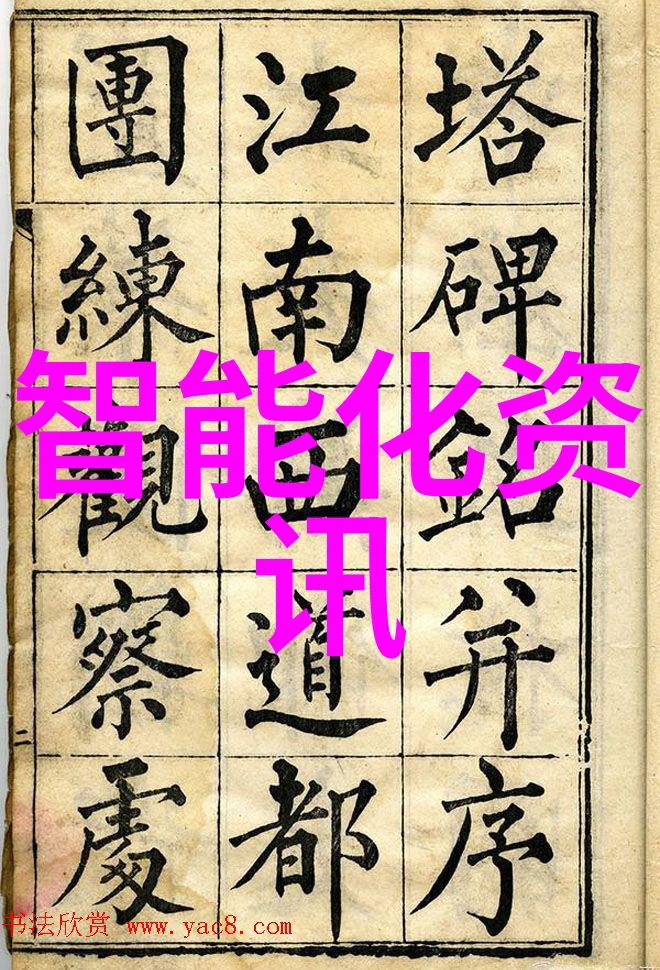 塔碑銘并序
江南西道都
團練觀察處
二
智能化资
讯
书法欣赏 www.yac8.com